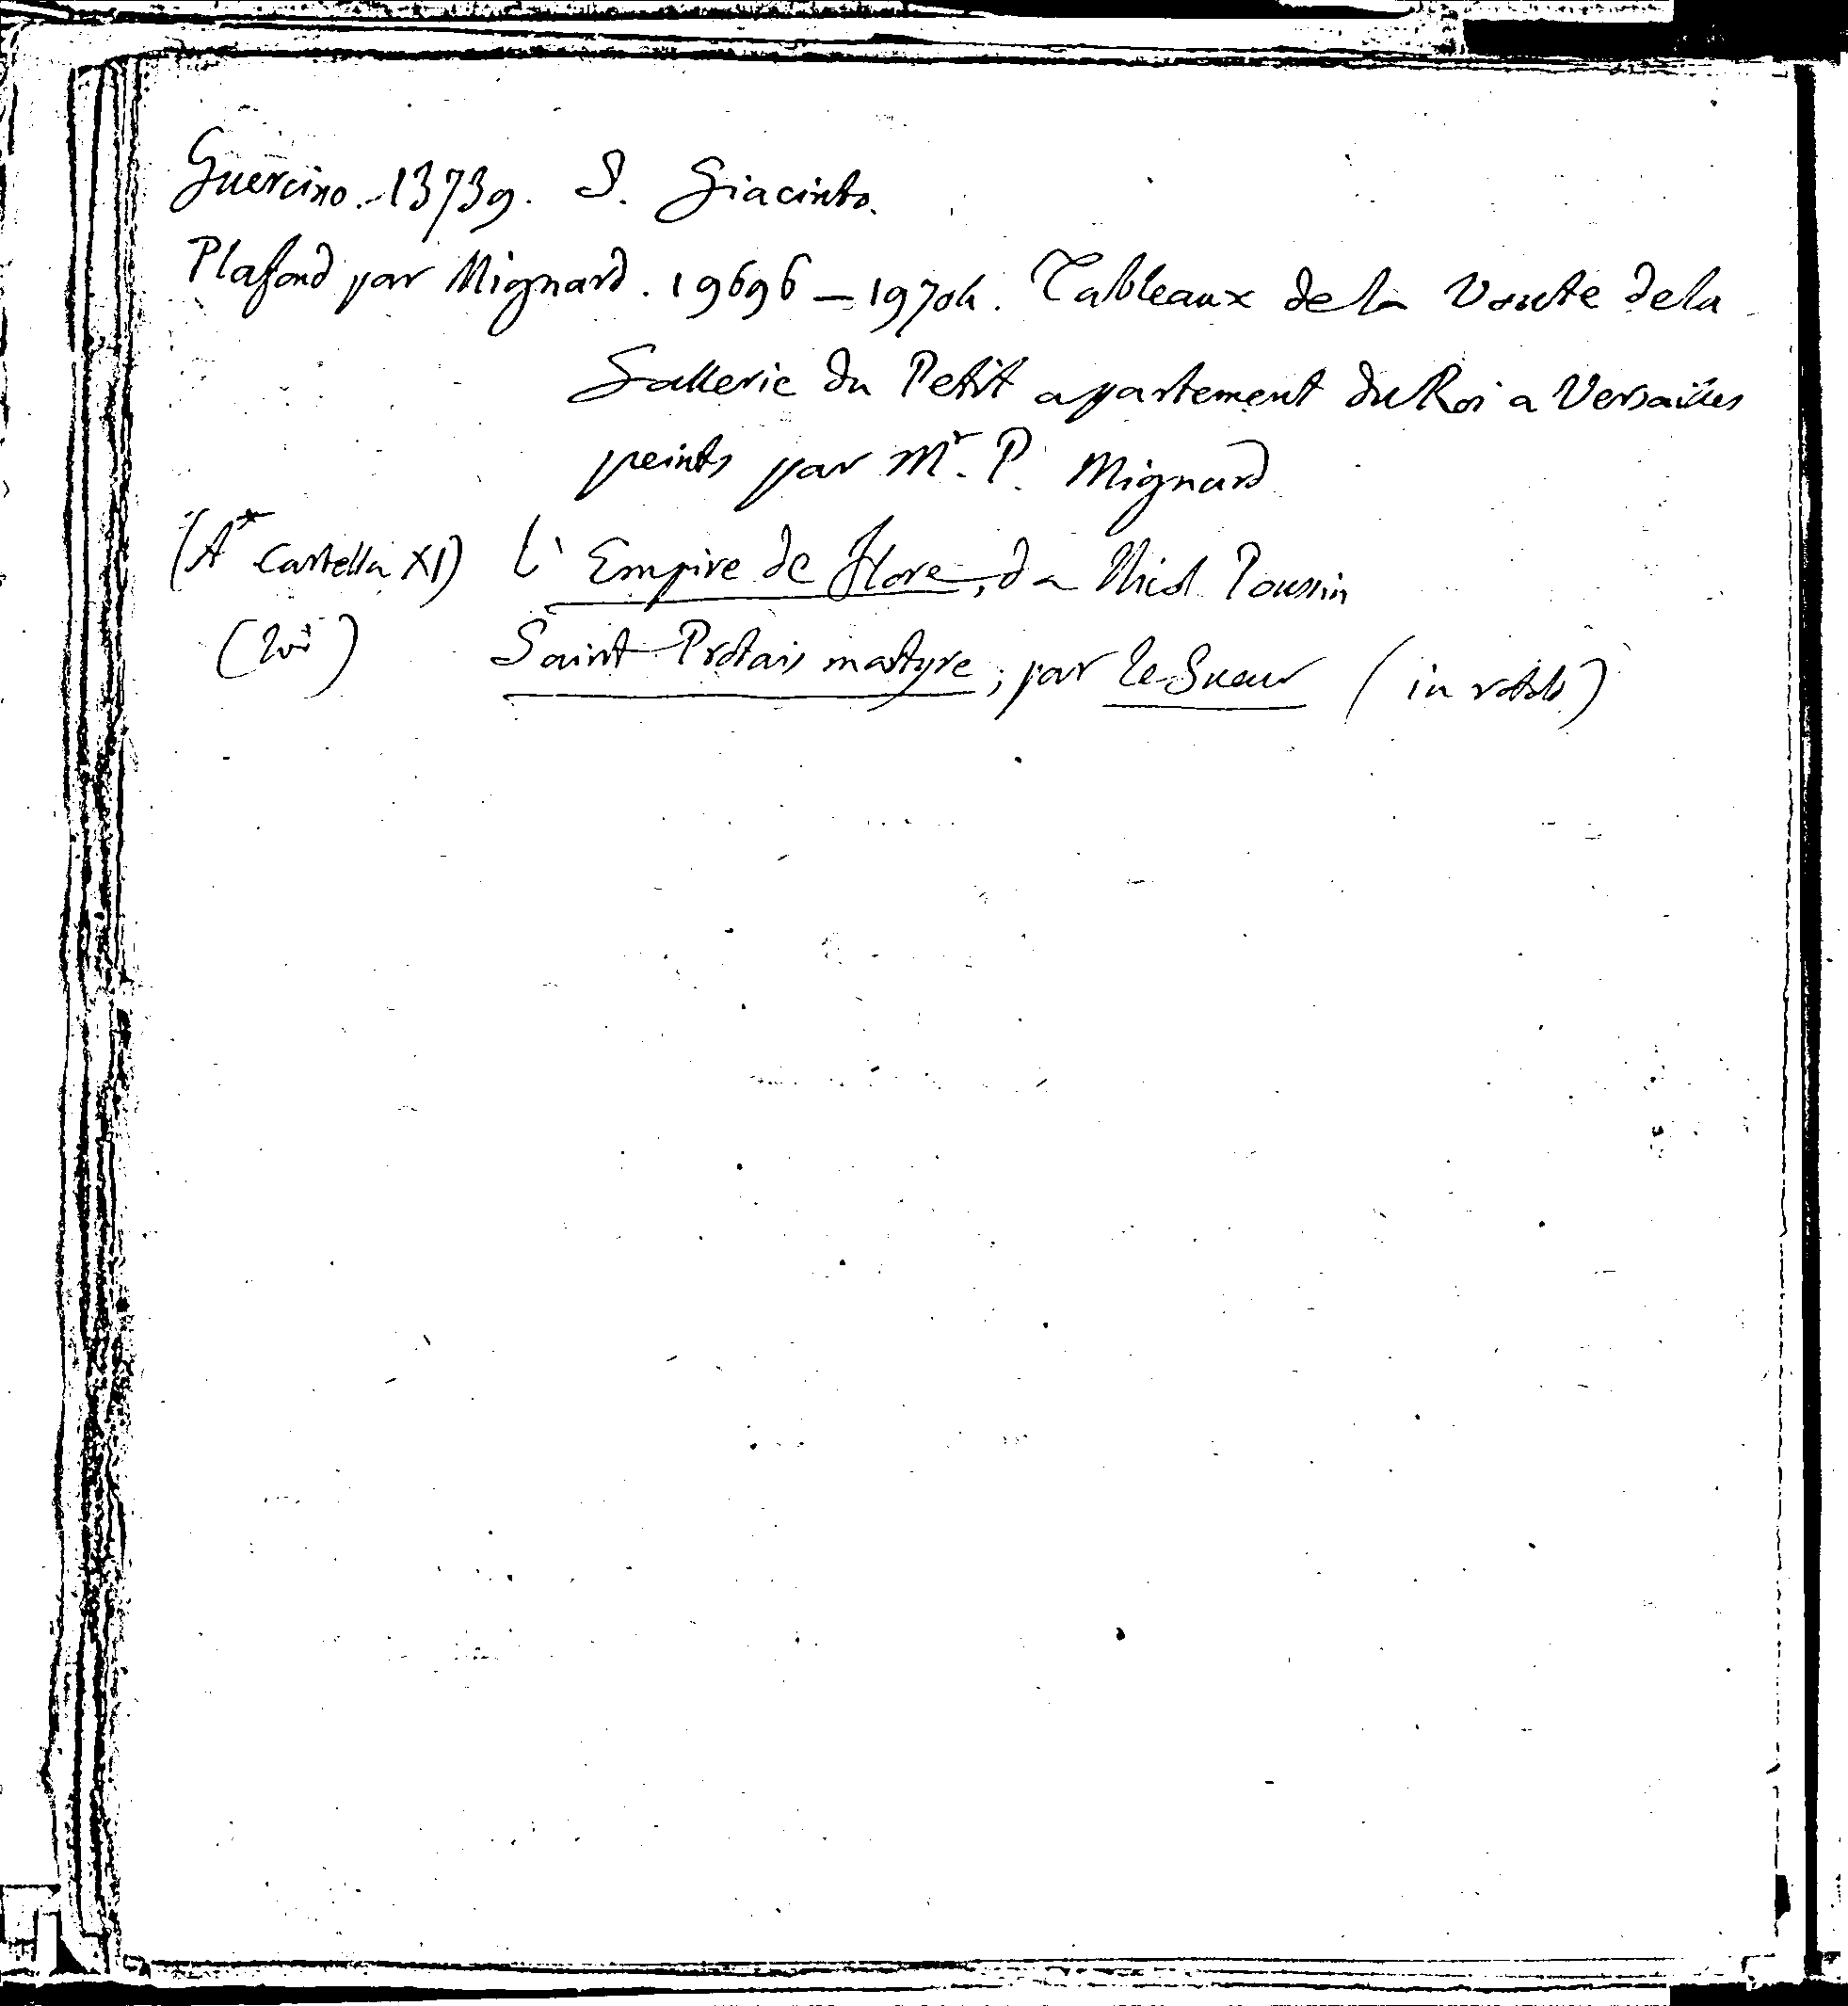 Guercino. 13739. S. Giacinto.
Plafond par Mignard. 19696 – 19704. Tableaux de la Voute de la
Gallerie du Petit appartement du Roi a Versailles
peints par Mr. P. Mignard
(A* Cartella XI) L'Empire de Flore, da Nicol Poussin
(Ivi) Saint Protais martyre, par Le Sueur (in rotolo)